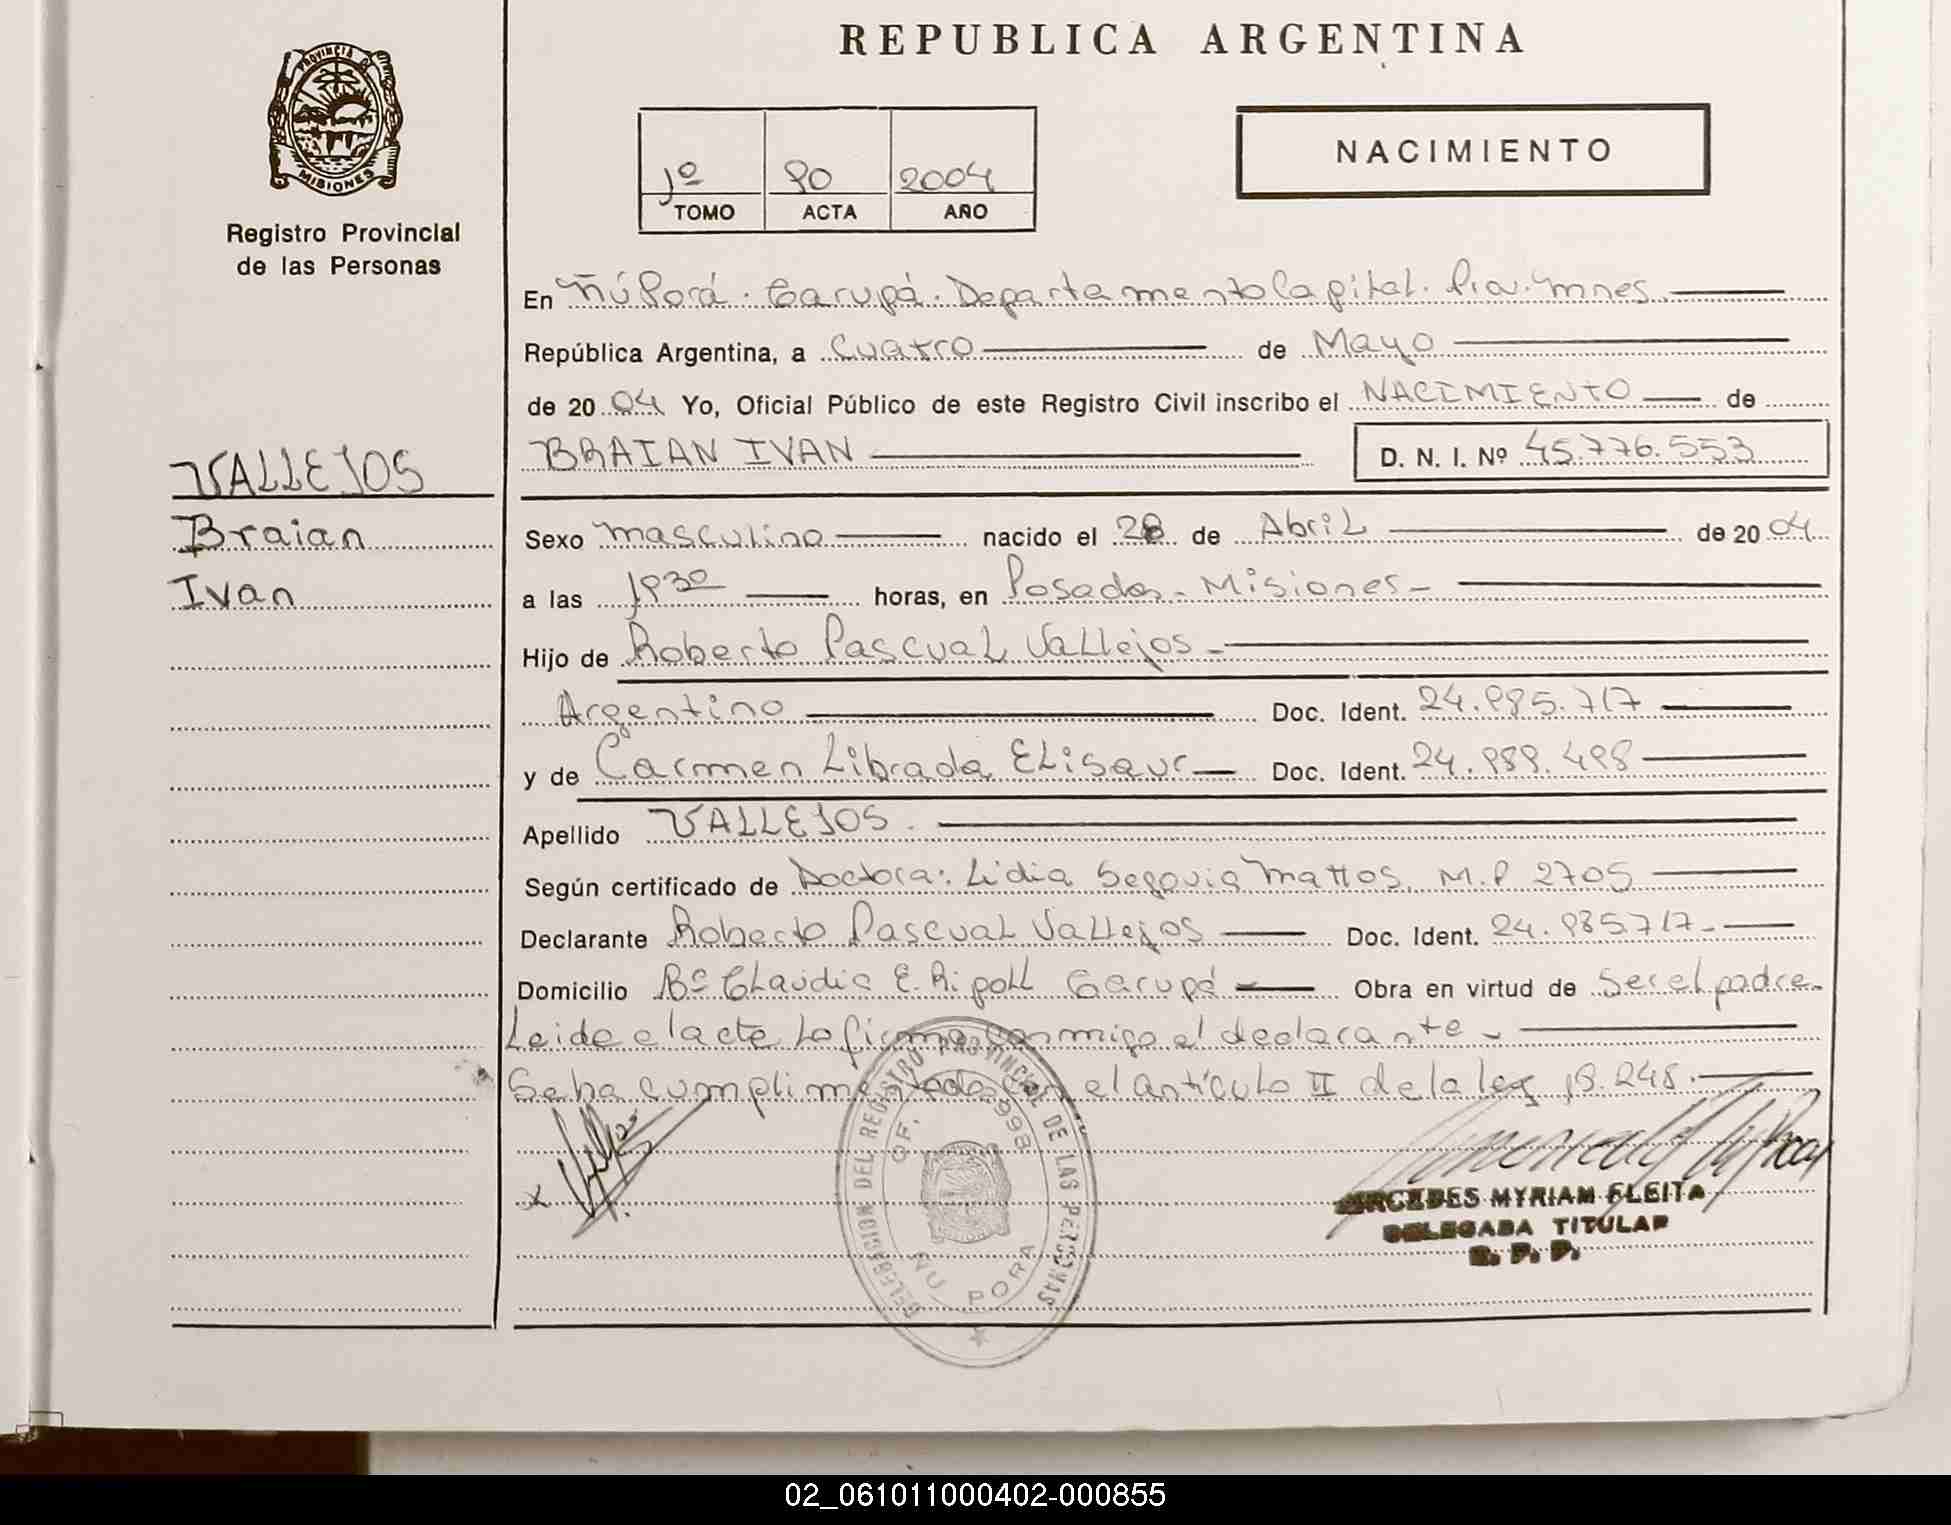 REPUBLICA ARGENTINA
PROVINCIA DE
MISIONES
Registro Provincial
de las Personas
1º 90 2004
TOMO ACTA AÑO
NACIMIENTO
En Ñú Porá. Garupá. Departamento Capital. Prov. Mnes.
República Argentina, a Cuatro de Mayo
de 2004 Yo, Oficial Público de este Registro Civil inscribo el NACIMIENTO de
BRAIAN IVAN D. N. I. Nº 45.776.553
VALLEJOS
Braian
Ivan
Sexo Masculino nacido el 28 de Abril de 2004
a las horas, en Posadas - Misiones -
Hijo de Roberto Pascual Vallejos -
Argentino Doc. Ident. 24.985.717
y de Carmen Librada Doc. Ident.
Apellido VALLEJOS.
Según certificado de Doctora: Lidia Segovia Mattos. M.P 2705
Declarante Roberto Pascual Vallejos Doc. Ident. 24.985717-
Domicilio Bº Claudia E. Ripoll Garupá Obra en virtud de Ser el padre.
Leida el acta La firma conmigo el declarante -
Se ha cumplimentado con el artículo II de la ley 18.248.
x
DELEGACION DEL REGISTRO PROVINCIAL DE LAS PERSONAS
OF. 9998
ÑU PORA
MERCEDES MYRIAM FLEITA
DELEGADA TITULAR
R. P. P.
02_061011000402-000855